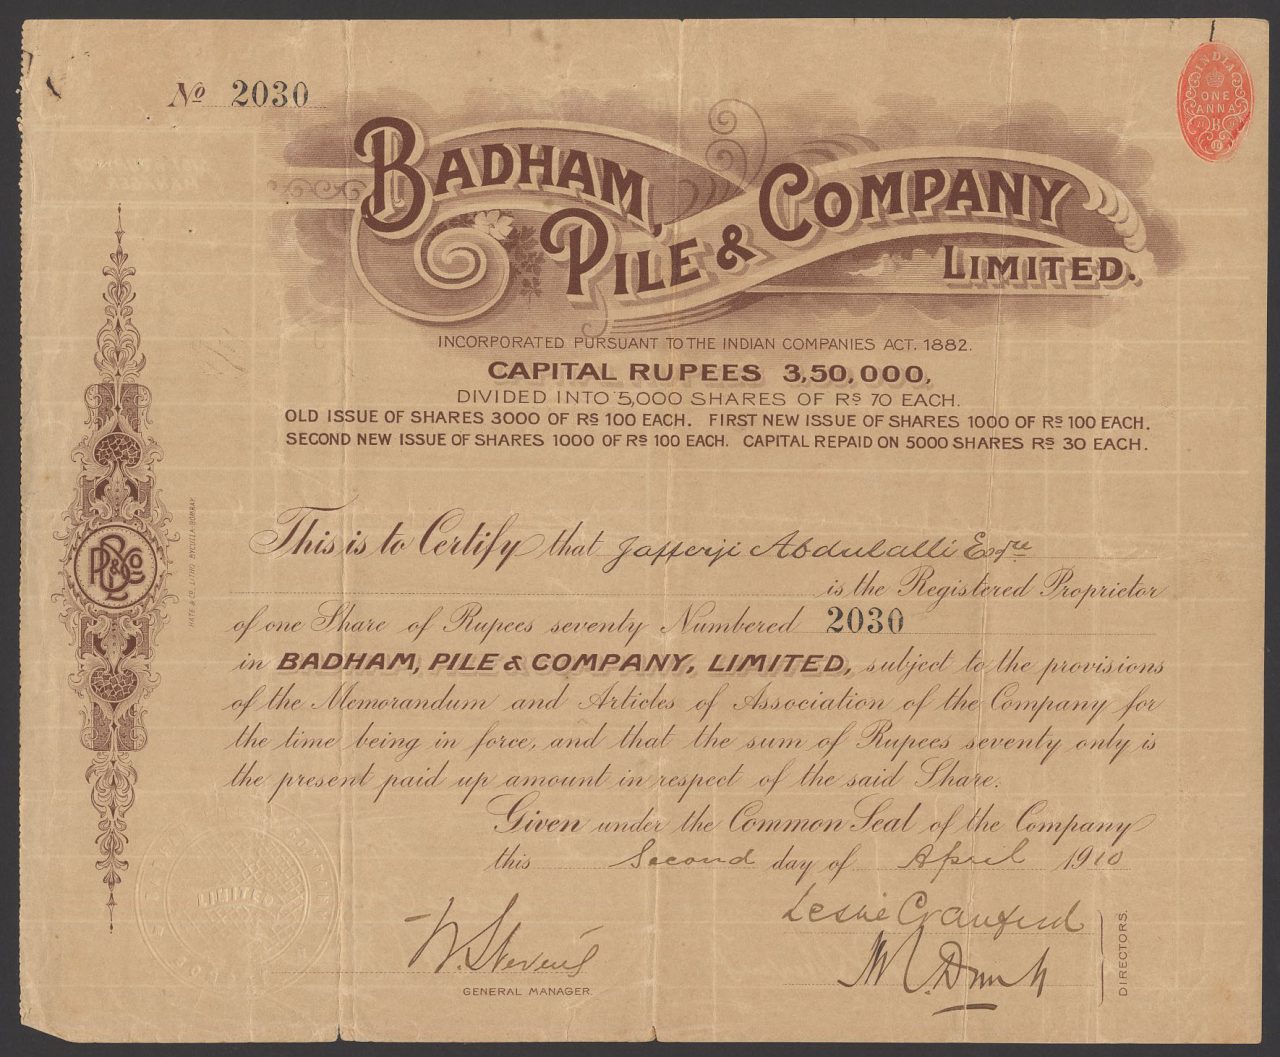 No 2030
INDIA
ONE
ANNA
BADHAM,
PILE & COMPANY
LIMITED.
INCORPORATED PURSUANT TO THE INDIAN COMPANIES ACT. 1882.
CAPITAL RUPEES 3,50,000,
DIVIDED INTO 5,000 SHARES OF RS 70 EACH.
OLD ISSUE OF SHARES 3000 OF RS 100 EACH. FIRST NEW ISSUE OF SHARES 1000 OF RS 100 EACH.
SECOND NEW ISSUE OF SHARES 1000 OF RS 100 EACH. CAPITAL REPAID ON 5000 SHARES RS 30 EACH.
This is to Certify that Jafferji Abdulalli Esqre
is the Registered Proprietor
of one Share of Rupees seventy Numbered 2030
in BADHAM, PILE & COMPANY, LIMITED, subject to the provisions
of the Memorandum and Articles of Association of the Company for
the time being in force, and that the sum of Rupees seventy only is
the present paid up amount in respect of the said Share.
Given under the Common Seal of the Company
this Second day of April 1910
LIMITED
W. Stevens
GENERAL MANAGER.
Leslie Crawford
DIRECTORS.
BP & Co
L
HATE & CO. LITHO BYCULLA-BOMBAY